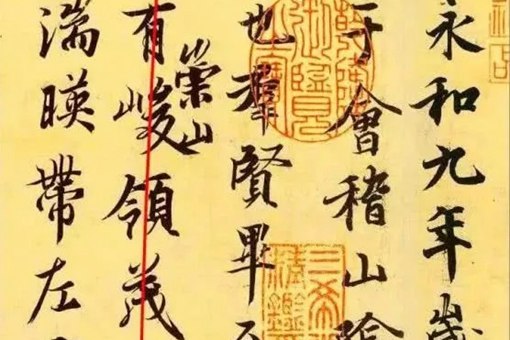 永和九年歲
于會稽山陰
也羣賢畢
有崇山峻領茂
湍暎帶左